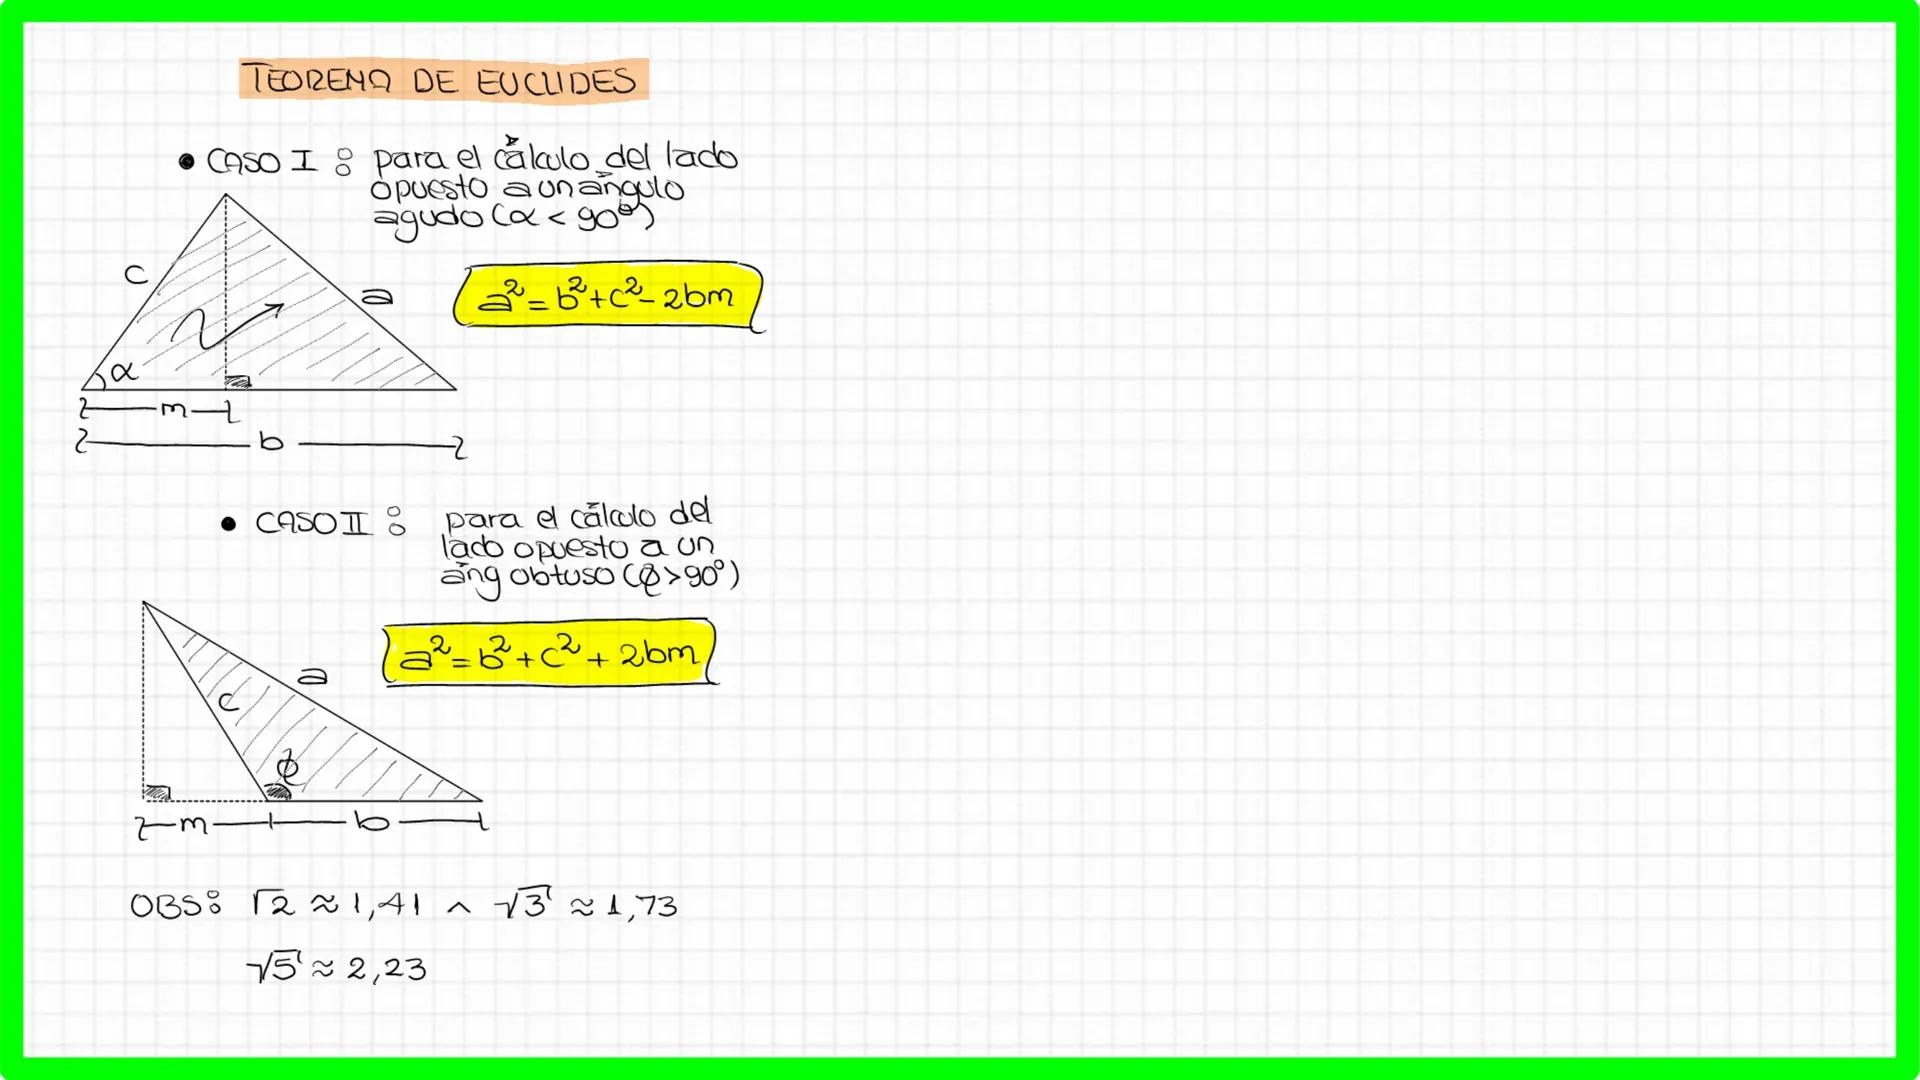 TEOREMA DE EUCLIDES
• CASO I : para el cálculo del lado
opuesto a un ángulo
agudo (α < 90°)
c
a
a² = b² + c² - 2bm
α
m
b
• CASO II : para el cálculo del
lado opuesto a un
áng obtuso (ϕ > 90°)
a² = b² + c² + 2bm
a
c
ϕ
m b
OBS: √2 ≈ 1,41 ∧ √3 ≈ 1,73
√5 ≈ 2,23